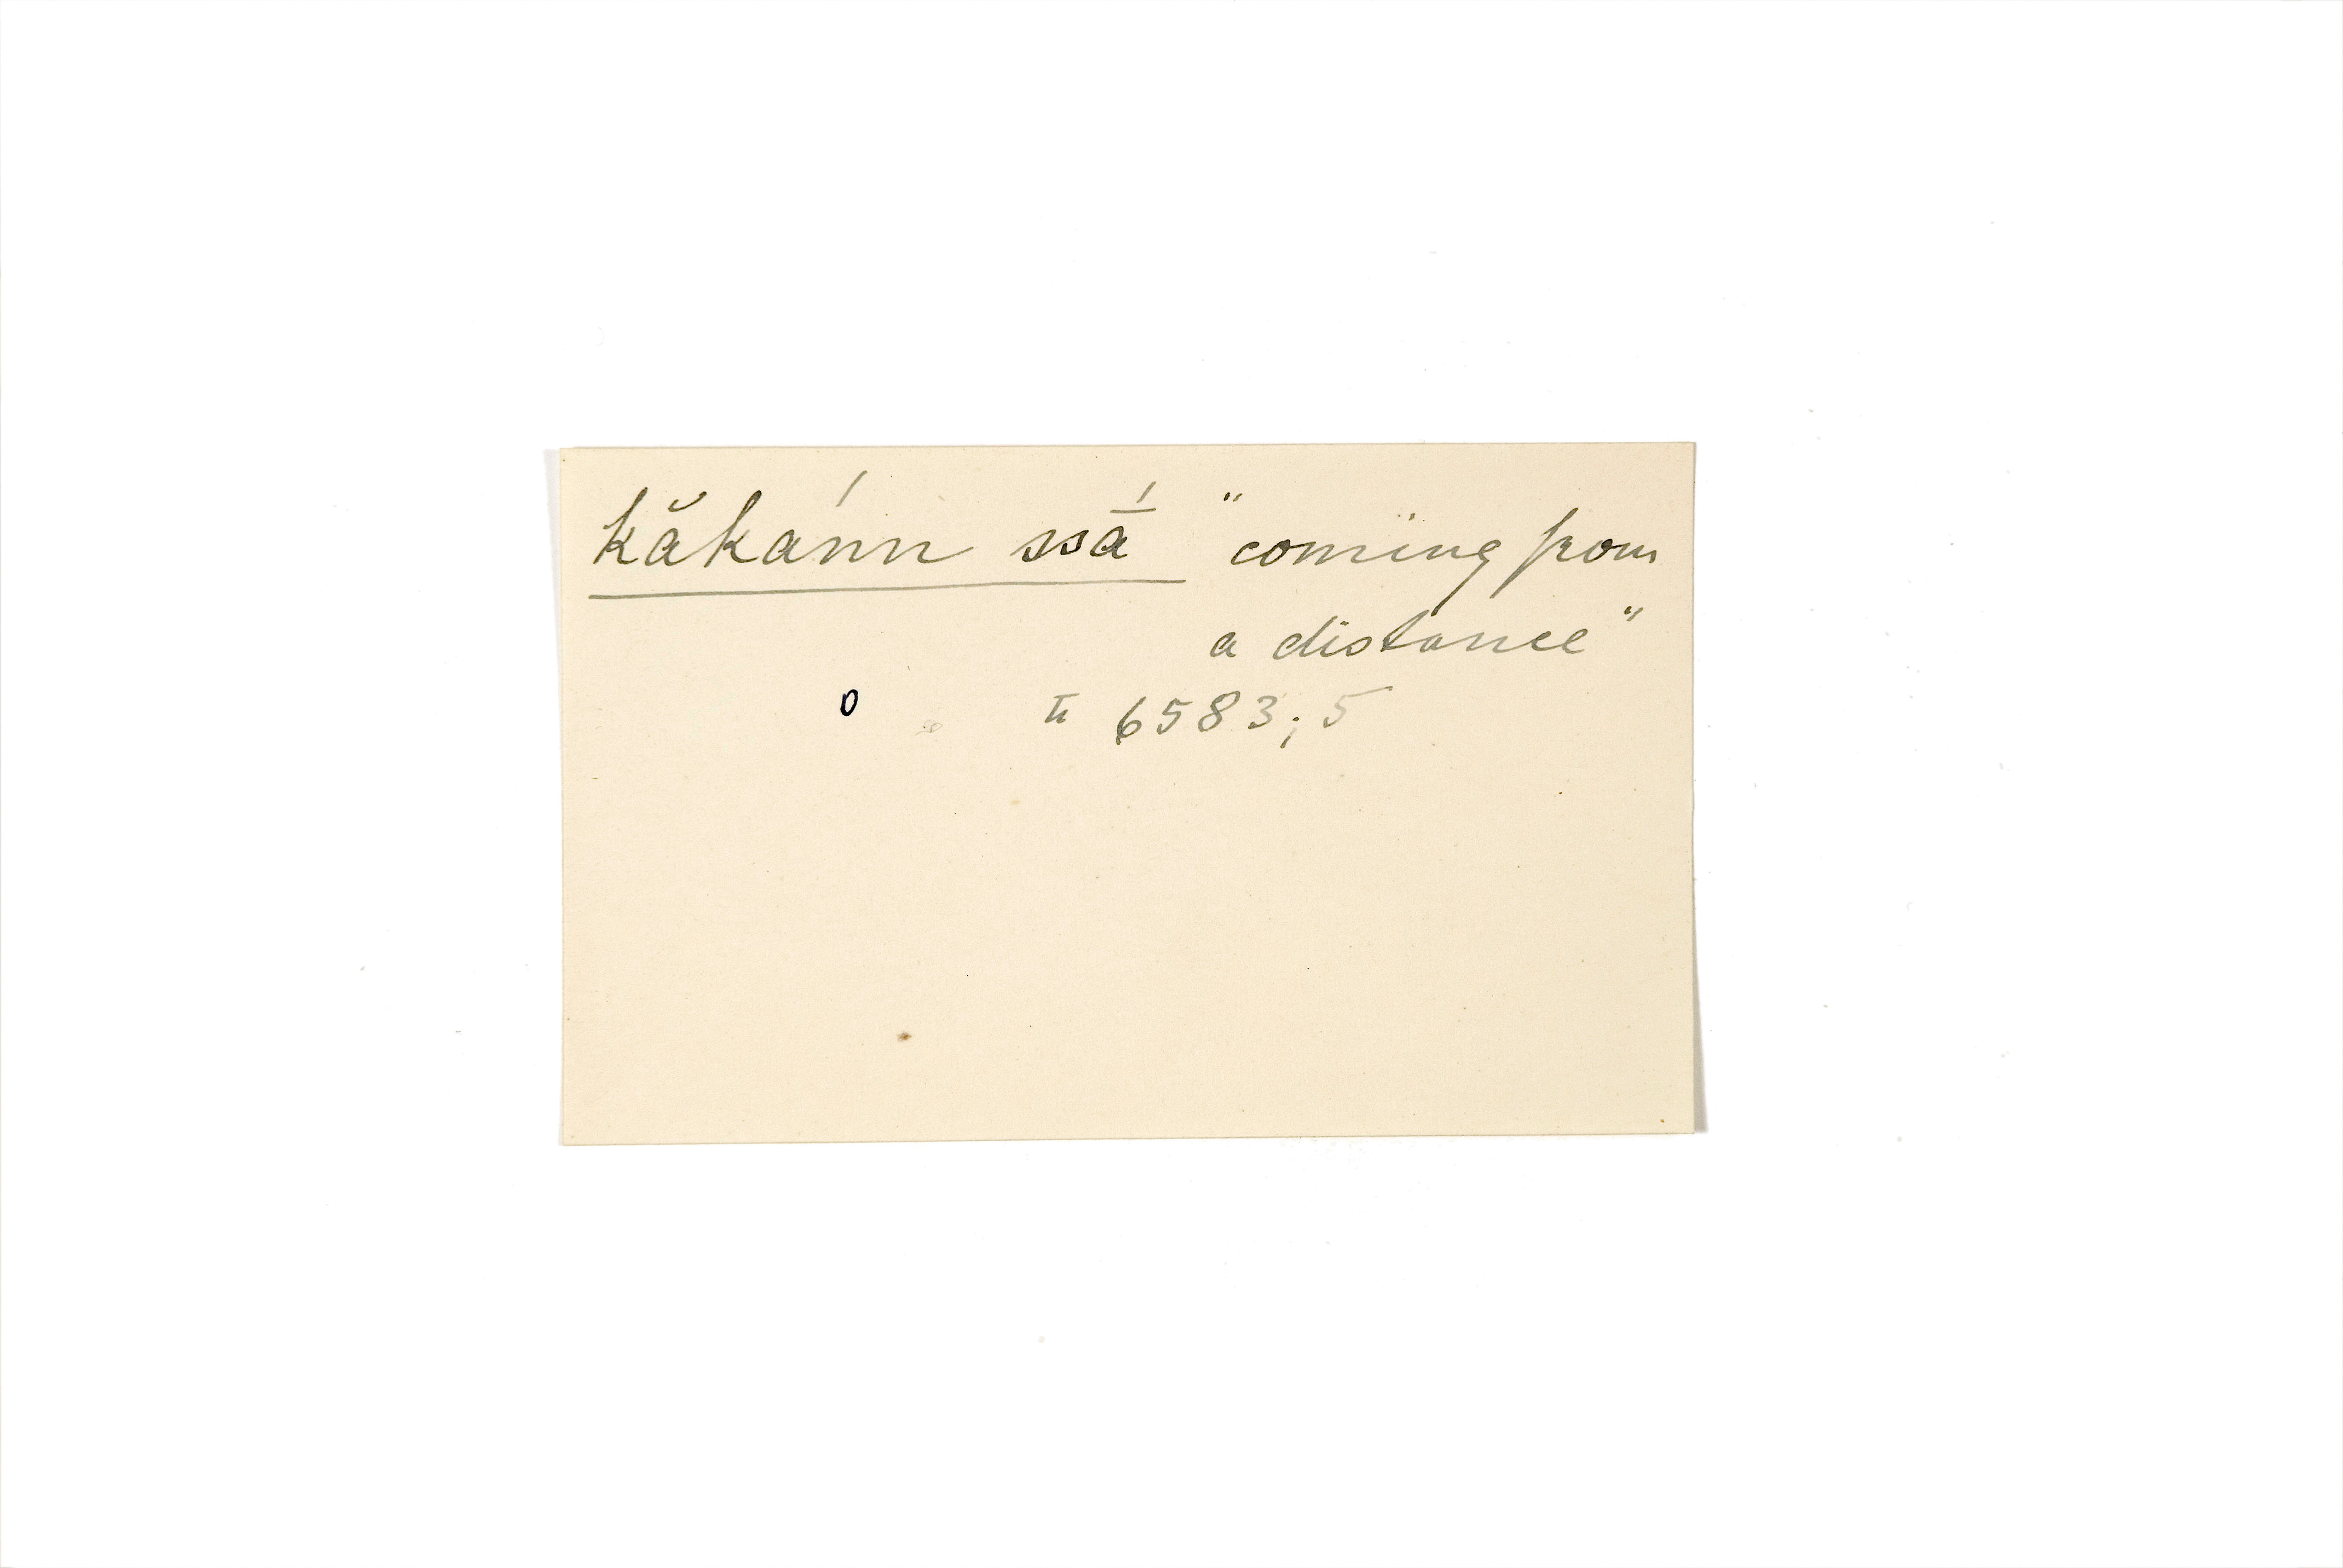 kăká́nn ssā́ "coming from
a distance"
o II 6583; 5